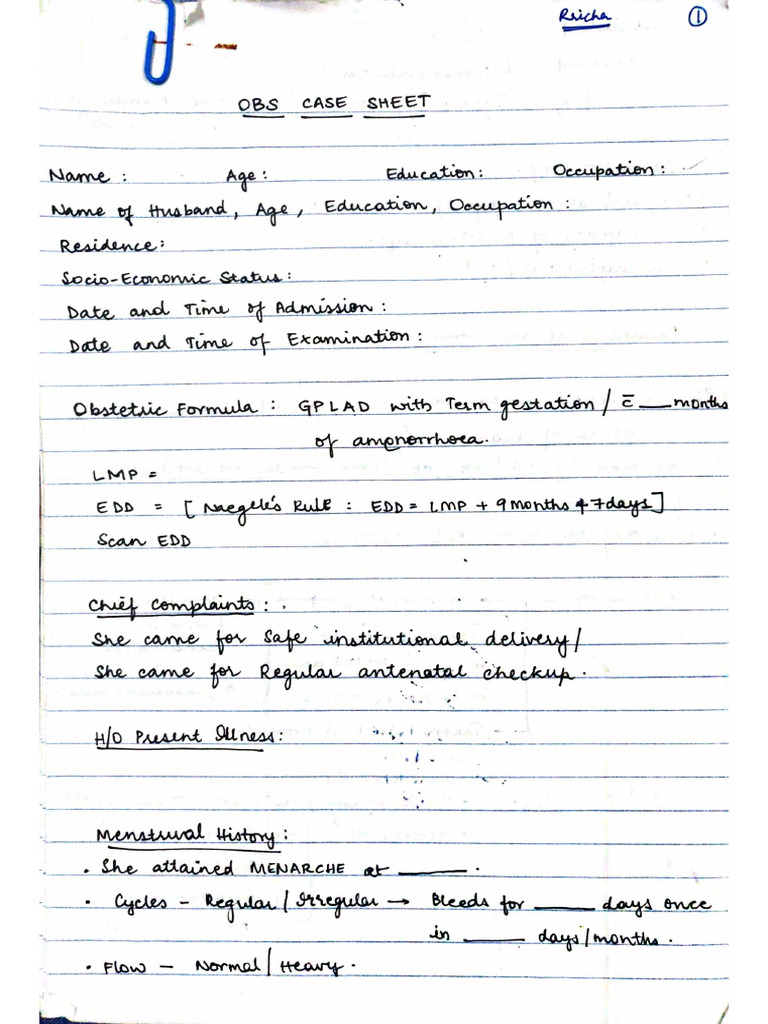 Reicha ①
OBS CASE SHEET
Name : Age : Education : Occupation :
Name of Husband, Age, Education, Occupation :
Residence :
Socio-Economic Status :
Date and Time of Admission :
Date and Time of Examination :
Obstetric Formula : GPLAD with Term gestation / c̄ ___ months
of amenorrhoea.
LMP =
EDD = [ Naegele's Rule : EDD = LMP + 9 months & 7 days ]
Scan EDD
Chief Complaints :
She came for Safe institutional delivery /
She came for Regular antenatal checkup.
H/O Present Illness :
Menstruval History :
• She attained MENARCHE at ______ .
• Cycles - Regular / Irregular → Bleeds for ______ days once
in ______ days/months.
• Flow - Normal / Heavy.